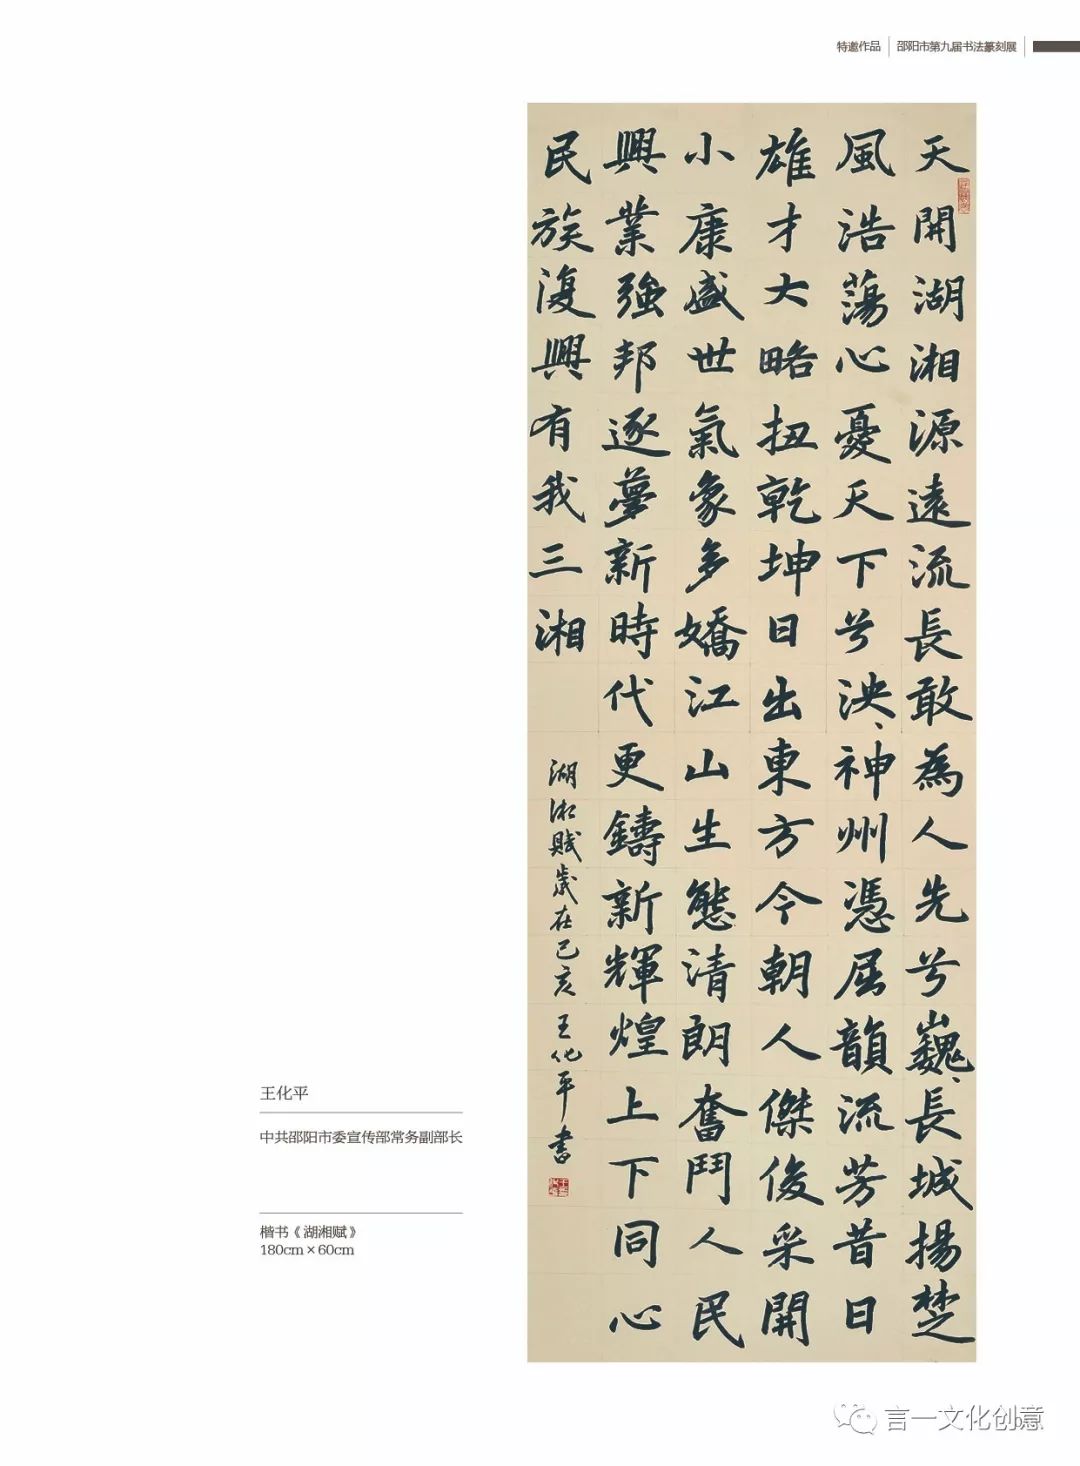 特邀作品 邵阳市第九届书法篆刻展
天開湖湘源遠流長敢為人先兮巍〻長城揚楚
風浩蕩心憂天下兮泱〻神州憑屈韻流芳昔日
雄才大略扭乾坤日出東方今朝人傑俊采開
小康盛世氣象多嬌江山生態清朗奮鬥人民
興業強邦逐夢新時代更鑄新輝煌上下同心
民族復興有我三湘
湖湘賦歲在己亥王化平書
王化平
中共邵阳市委宣传部常务副部长
楷书《湖湘赋》
180cm×60cm
言一文化创意